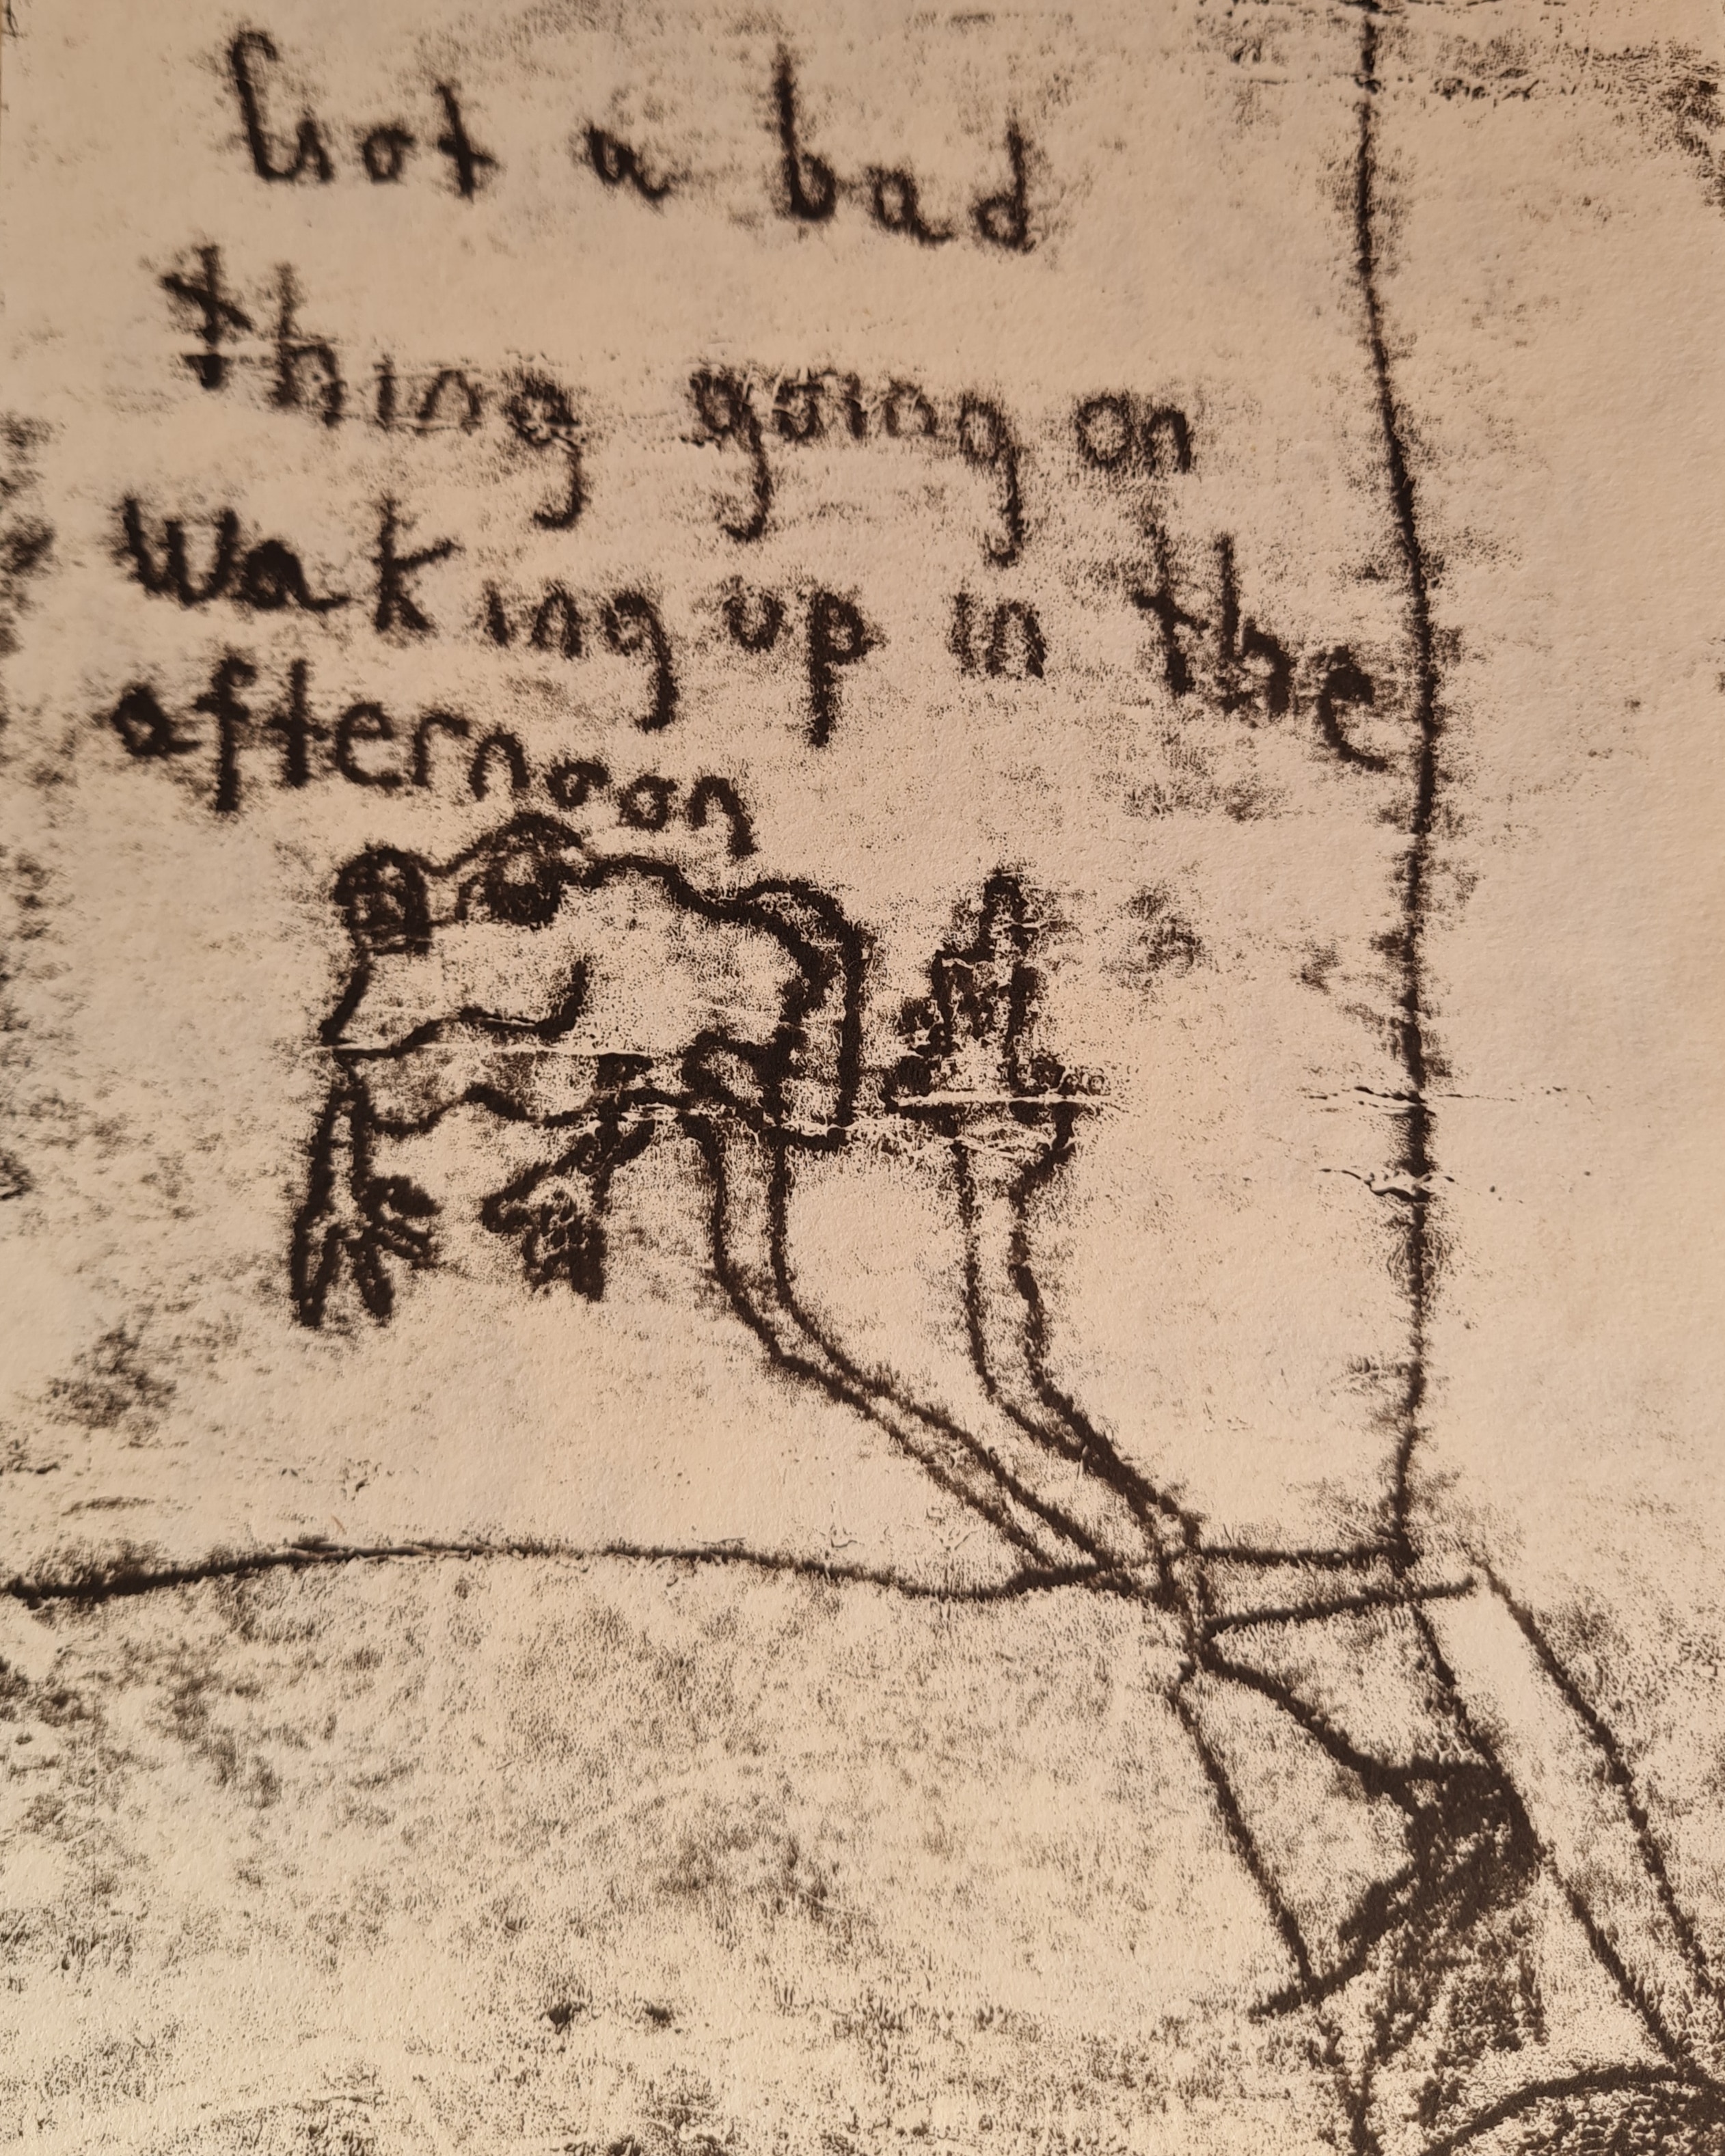 Got a bad
thing going on
waking up in the
afternoon